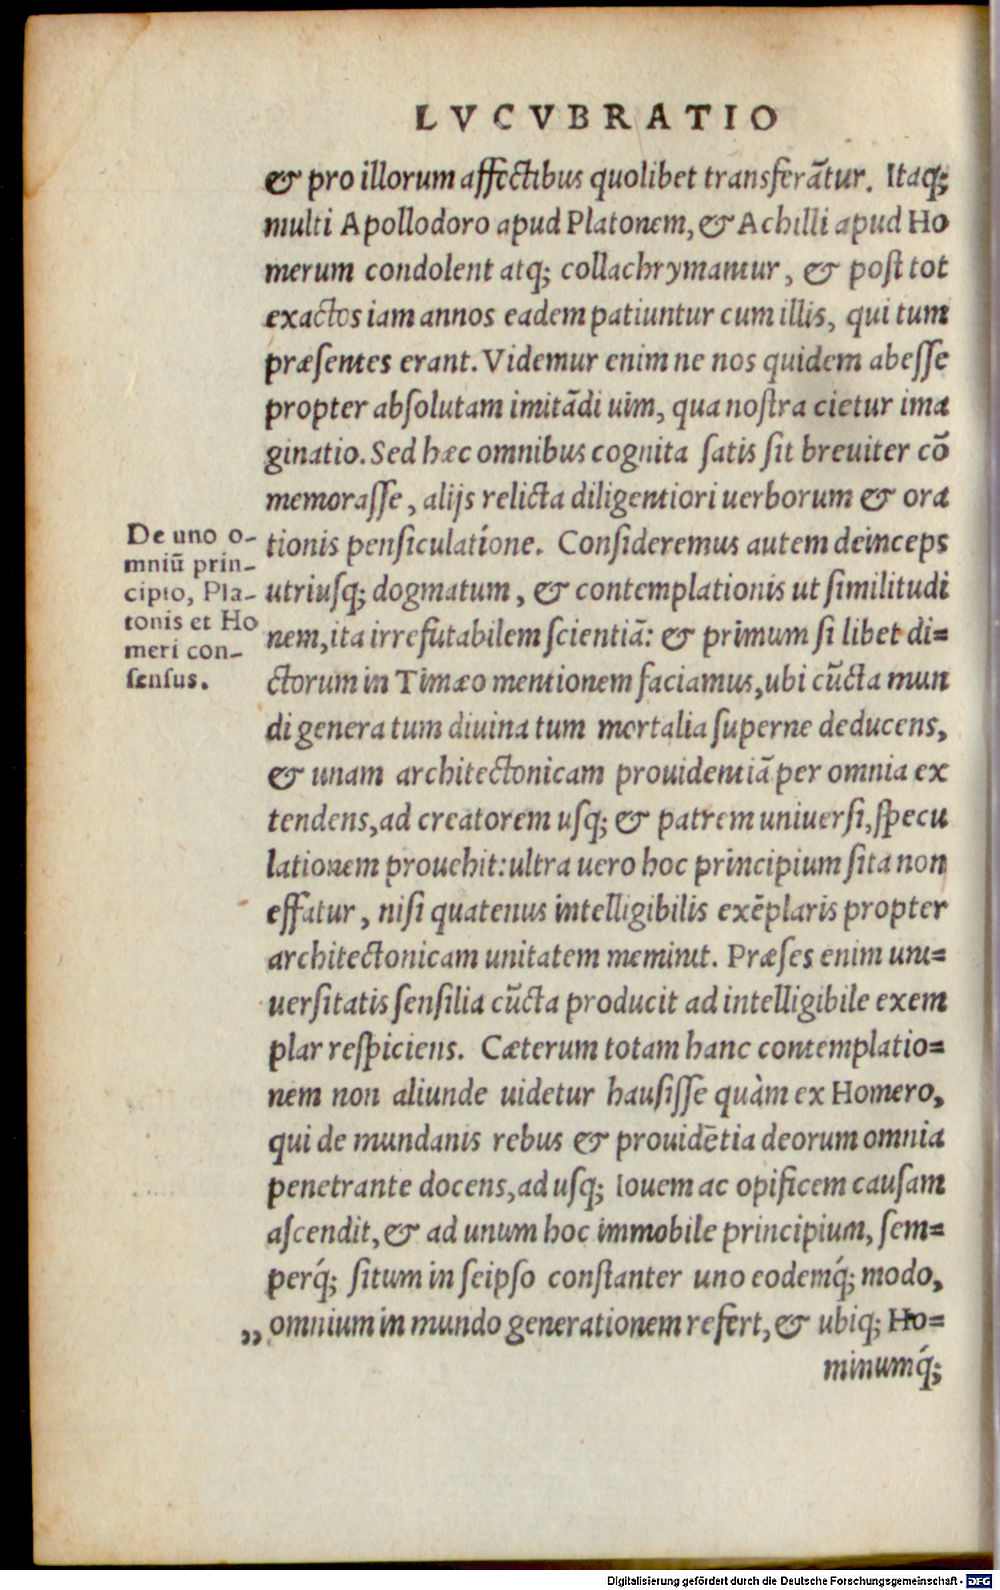 LVCVBRATIO
& pro illorum affectibus quolibet transferãtur. Itaq;
multi Apollodoro apud Platonem, & Achilli apud Ho
merum condolent atq; collachrymantur, & post tot
exactos iam annos eadem patiuntur cum illis, qui tum
præsentes erant. Videmur enim ne nos quidem abesse
propter absolutam imitãdi uim, qua nostra cietur ima
ginatio. Sed hæc omnibus cognita satis sit breuiter cõ
memorasse, alijs relicta diligentiori uerborum & ora
tionis pensiculatióne. Consideremus autem deinceps
utriusq; dogmatum, & contemplationis ut similitudi
nem, ita irrefutabilem scientiã: & primum si libet di=
ctorum in Timæo mentionem faciamus, ubi cũcta mun
di genera tum diuina tum mortalia superne deducens,
& unam architectonicam prouidentiã per omnia ex
tendens, ad creatorem usq; & patrem uniuersi, specu
lationem prouehit: ultra uero hoc principium sita non
effatur, nisi quatenus intelligibilis exẽplaris propter
architectonicam unitatem meminit. Præses enim uni=
uersitatis sensilia cũcta producit ad intelligibile exem
plar respiciens. Cæterum totam hanc contemplatio=
nem non aliunde uidetur hausisse quàm ex Homero,
qui de mundanis rebus & prouidẽtia deorum omnia
penetrante docens, ad usq; Iouem ac opificem causam
ascendit, & ad unum hoc immobile principium, sem=
perq́; situm in seipso constanter uno eodemq́; modo,
„ omnium in mundo generationem refert, & ubiq; Ho=
minumq́;
De uno o-
mniũ prin-
cipio, Pla-
tonis et Ho
meri con-
sensus.
Digitalisierung gefördert durch die Deutsche Forschungsgemeinschaft - DFG